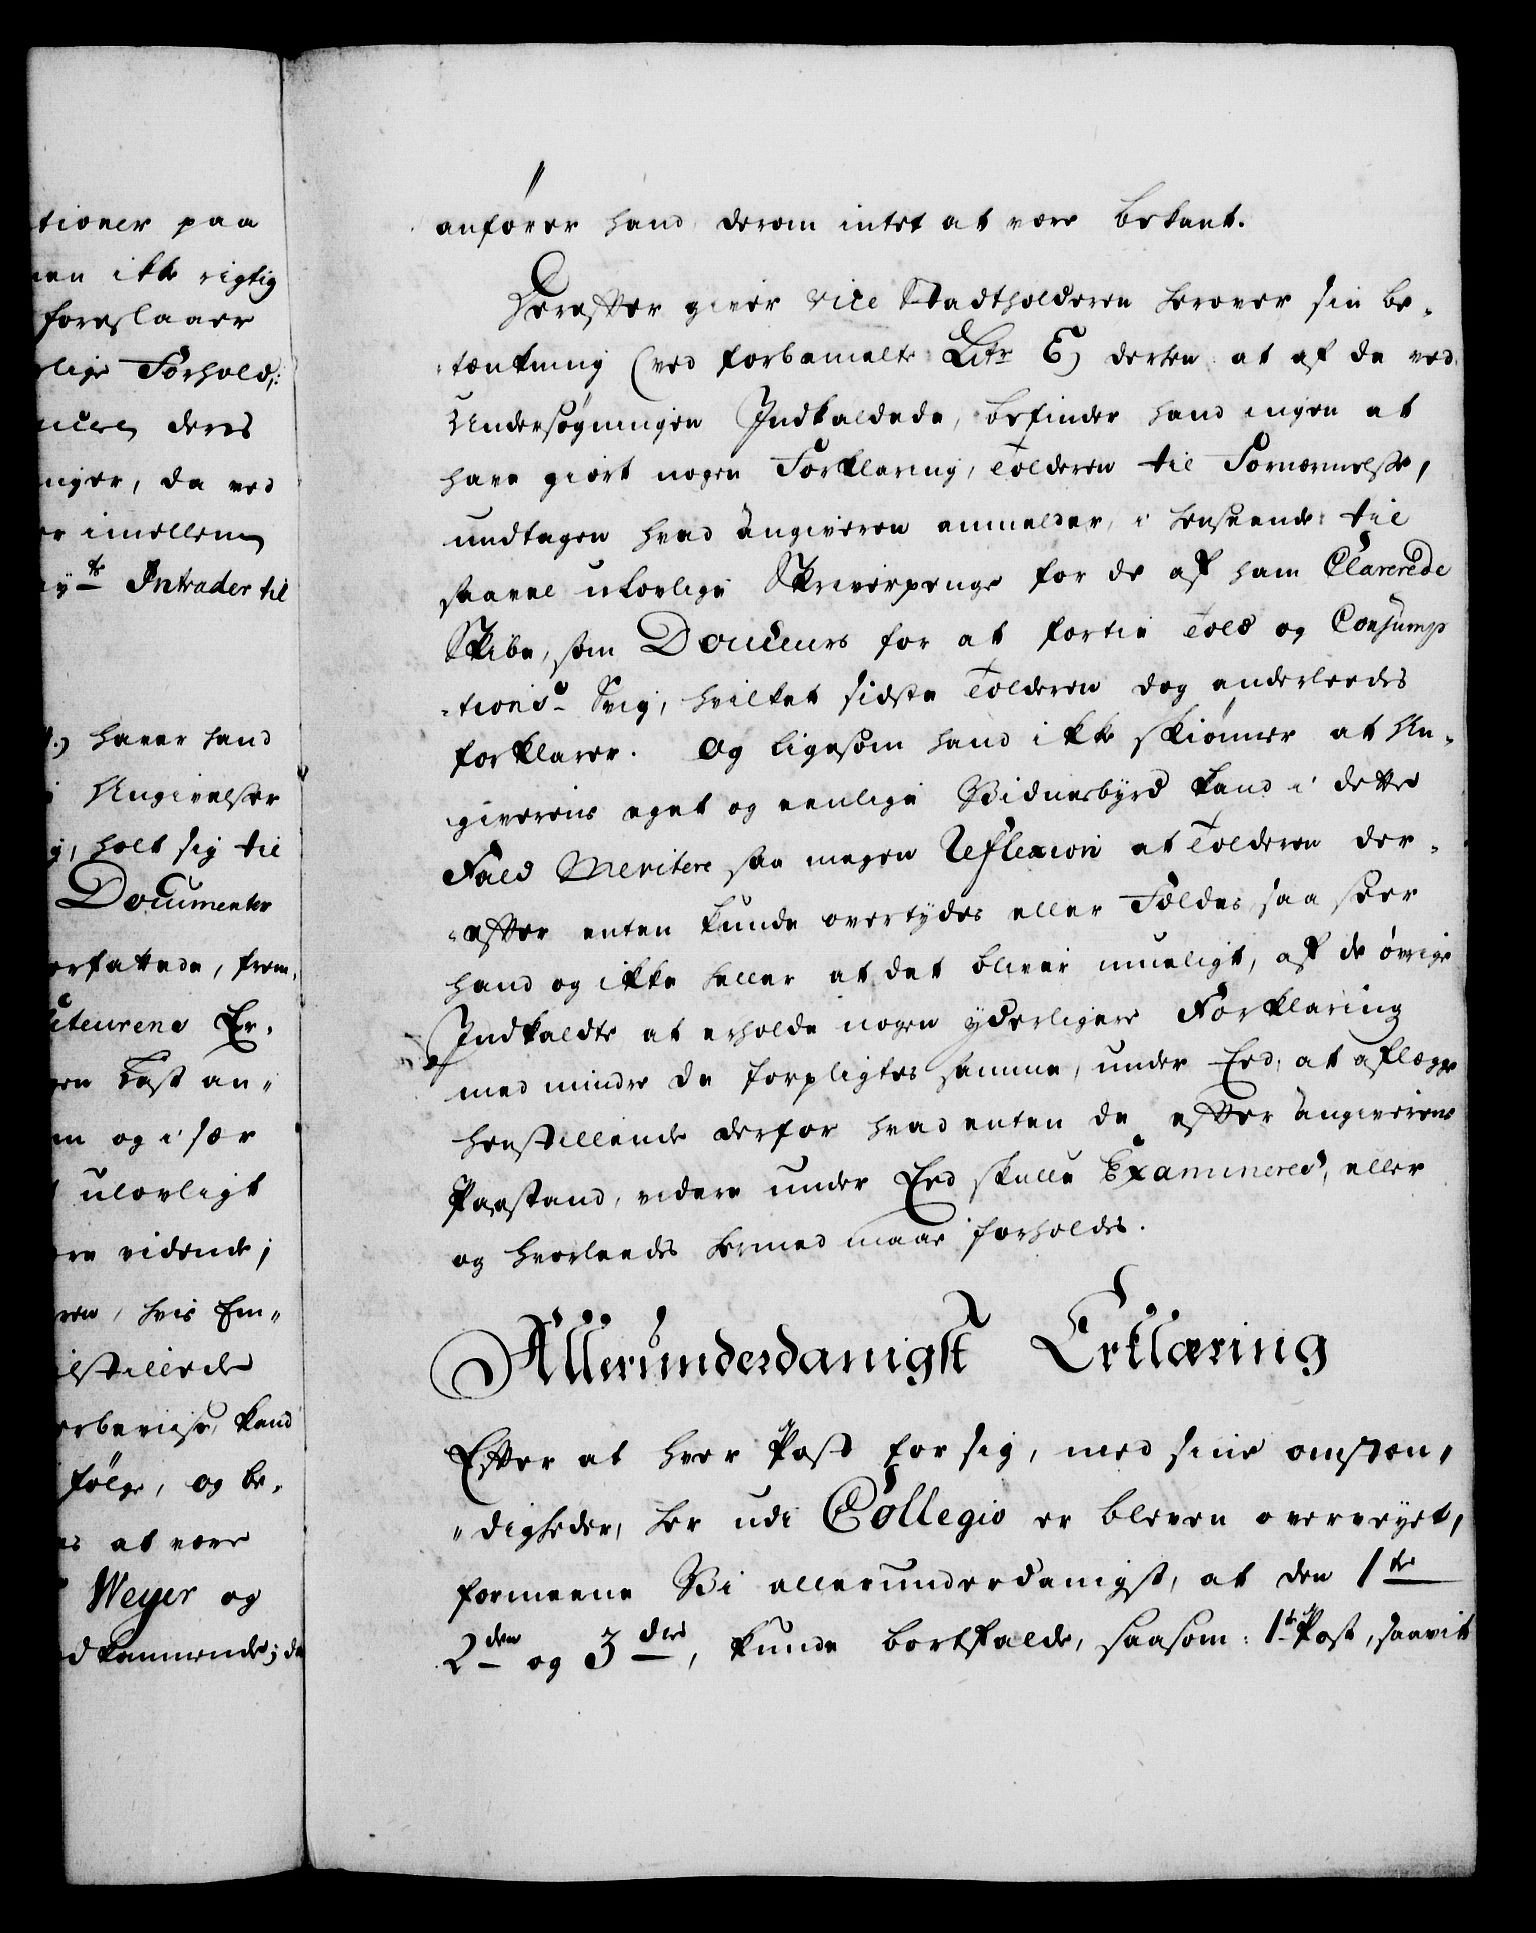 tioner paa
en ikke rigtig
foreslaaer
lige Forhold,
deres
nger, da ved
er imellem
Intrader til
haver hand
Angivelser
holt sig til
Documenter
erfatede, frem-
iteurens Er-
en Last an-
m og i sær
ulovligt
re vidende;
ren, hvis Em-
ilstillede
erbeviise, kand
følge, og be-
at være
Weyer og
dkommende; da
anfører hand derom intet at være bekant.
Derefter giver Vice Stadtholderen herover sin be-
-tænkning (ved forbemelte Litr E) derhen at af de ved
Undersøgningen Indkaldede, befinder hand ingen at
have giort nogen Forklaring, Tolderen til Fornærmelse,
undtagen hvad Angiveren anmelder, i henseende til
saavel ulovlige Skriverpenge for de af ham Clarerede
Skibe, som Douceurs for at fortie Told og Consump
-tions- Svig, hvilket sidste Tolderen dog anderleedes
forklarer. Og ligesom hand ikke skiønner at An-
giverens eget og eenlige Vidnesbyrd kand i dette
Fald Meritere saa megen Reflexion at Tolderen der-
-efter enten kunde overtydes eller Fældes, saa seer
hand og ikke heller at det bliver mueligt, af de øvrige
Indkaldte at erholde nogen yderligere Forklaring
med mindre de forpligtes samme, under Eed, at aflegge
henstillende derfor hvad enten de efter Angiverens
Paastand, videre under Eed skulle Examineres, eller
og hvorleedes hermed maae forholdes.
Allerunderdanigst Erklæring
Efter at hver Post for sig, med sine omstæn-
-digheder, her udi Collegio er bleven overveyet,
formeene Vi allerunderdanigst, at den 1te
2den og 3die, kunde bortfalde, saasom: 1te Post, saavit